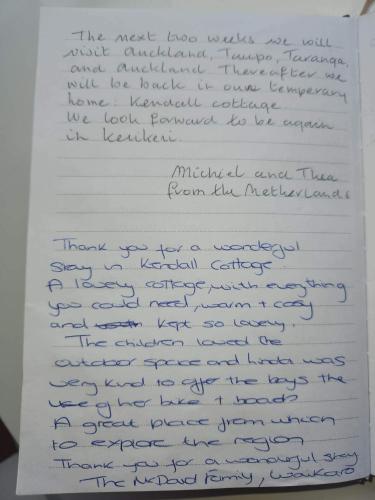 The next two weeks we will
visit Auckland, Taupo, Tauranga,
and Auckland. Thereafter we
will be back in our temperary
home: Kendall cottage.
We look forward to be again
in Kerikeri.
Michiel and Thea
from the Netherlands
Thank you for a wonderful
stay in Kendall Cottage.
A lovely cottage, with everything
you could need, warm + cosy
and kept so lovely.
The children loved the
outdoor space and Linda was
very kind to offer the boys the
use of her bike + boards
A great place from which
to explore the region
Thank you for a wonderful stay
The McDavid Family, Waikato